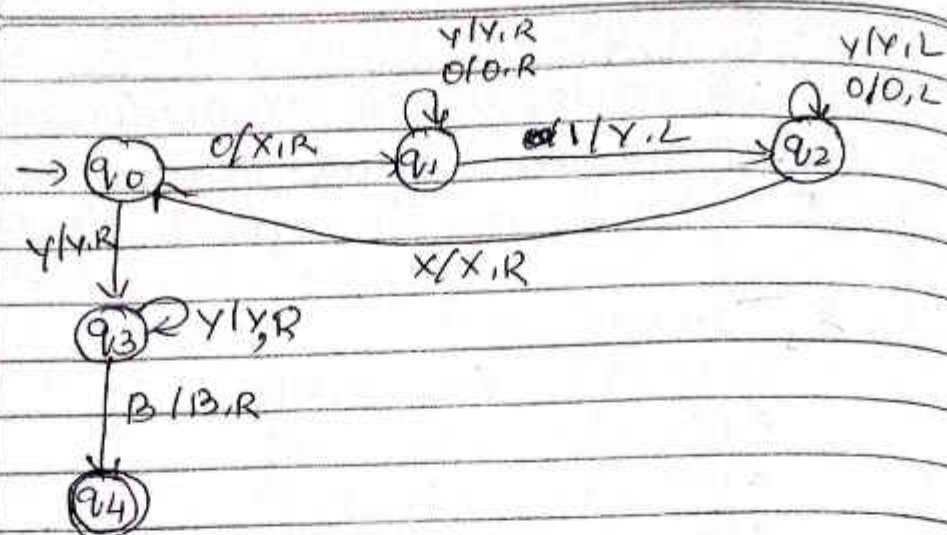 Y/Y,R
0/0,R
Y/Y,L
0/0,L
→ q0
0/X,R
q1
1/Y,L
q2
Y/Y,R
X/X,R
q3
Y/Y,R
B/B,R
q4